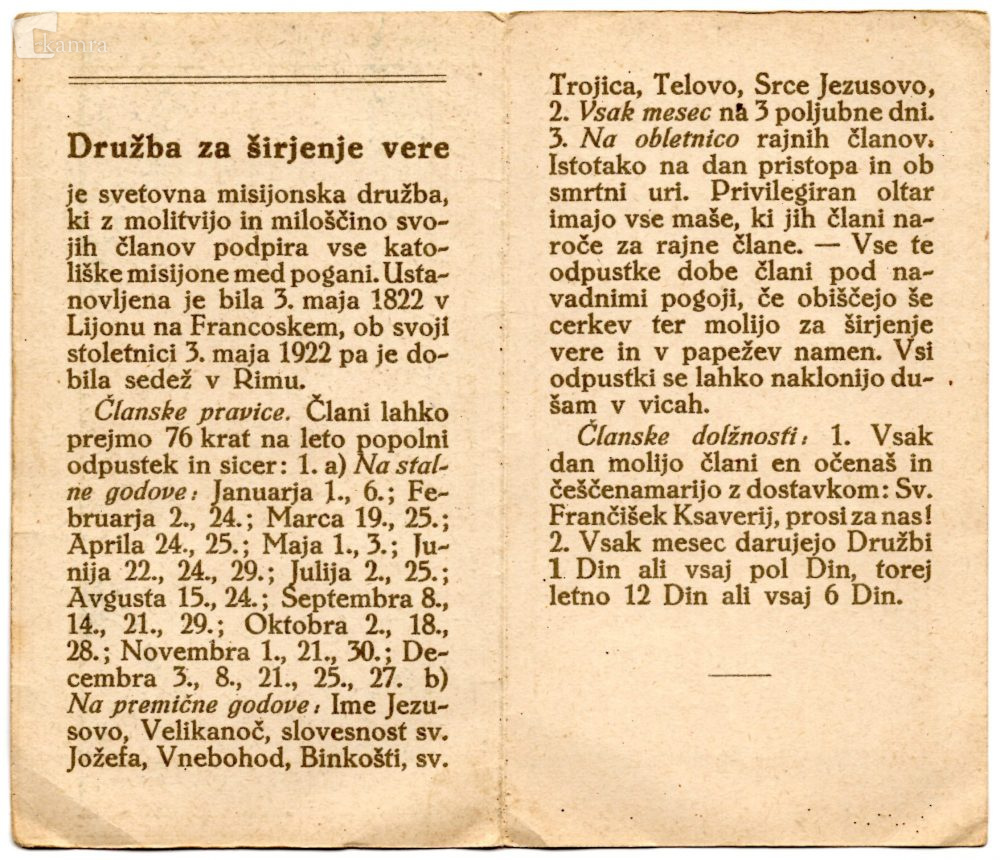 kamra
Družba za širjenje vere
je svetovna misijonska družba,
ki z molitvijo in miloščino svo-
jih članov podpira vse kato-
liške misijone med pogani. Usta-
novljena je bila 3. maja 1822 v
Lijonu na Francoskem, ob svoji
stoletnici 3. maja 1922 pa je do-
bila sedež v Rimu.
Članske pravice. Člani lahko
prejmo 76 krat na leto popolni
odpustek in sicer: 1. a) Na stal-
ne godove: Januarja 1., 6.; Fe-
bruarja 2., 24.; Marca 19., 25.;
Aprila 24., 25.; Maja 1., 3.; Ju-
nija 22., 24., 29.; Julija 2., 25.;
Avgusta 15., 24.; Septembra 8.,
14., 21., 29.; Oktobra 2., 18.,
28.; Novembra 1., 21., 30.; De-
cembra 3., 8., 21., 25., 27. b)
Na premične godove: Ime Jezu-
sovo, Velikanoč, slovesnost sv.
Jožefa, Vnebohod, Binkošti, sv.
Trojica, Telovo, Srce Jezusovo,
2. Vsak mesec na 3 poljubne dni.
3. Na obletnico rajnih članov.
Istotako na dan pristopa in ob
smrtni uri. Privilegiran oltar
imajo vse maše, ki jih člani na-
roče za rajne člane. — Vse te
odpustke dobe člani pod na-
vadnimi pogoji, če obiščejo še
cerkev ter molijo za širjenje
vere in v papežev namen. Vsi
odpustki se lahko naklonijo du-
šam v vicah.
Članske dolžnosti: 1. Vsak
dan molijo člani en očenaš in
češčenamarijo z dostavkom: Sv.
Frančišek Ksaverij, prosi za nas!
2. Vsak mesec darujejo Družbi
1 Din ali vsaj pol Din, torej
letno 12 Din ali vsaj 6 Din.